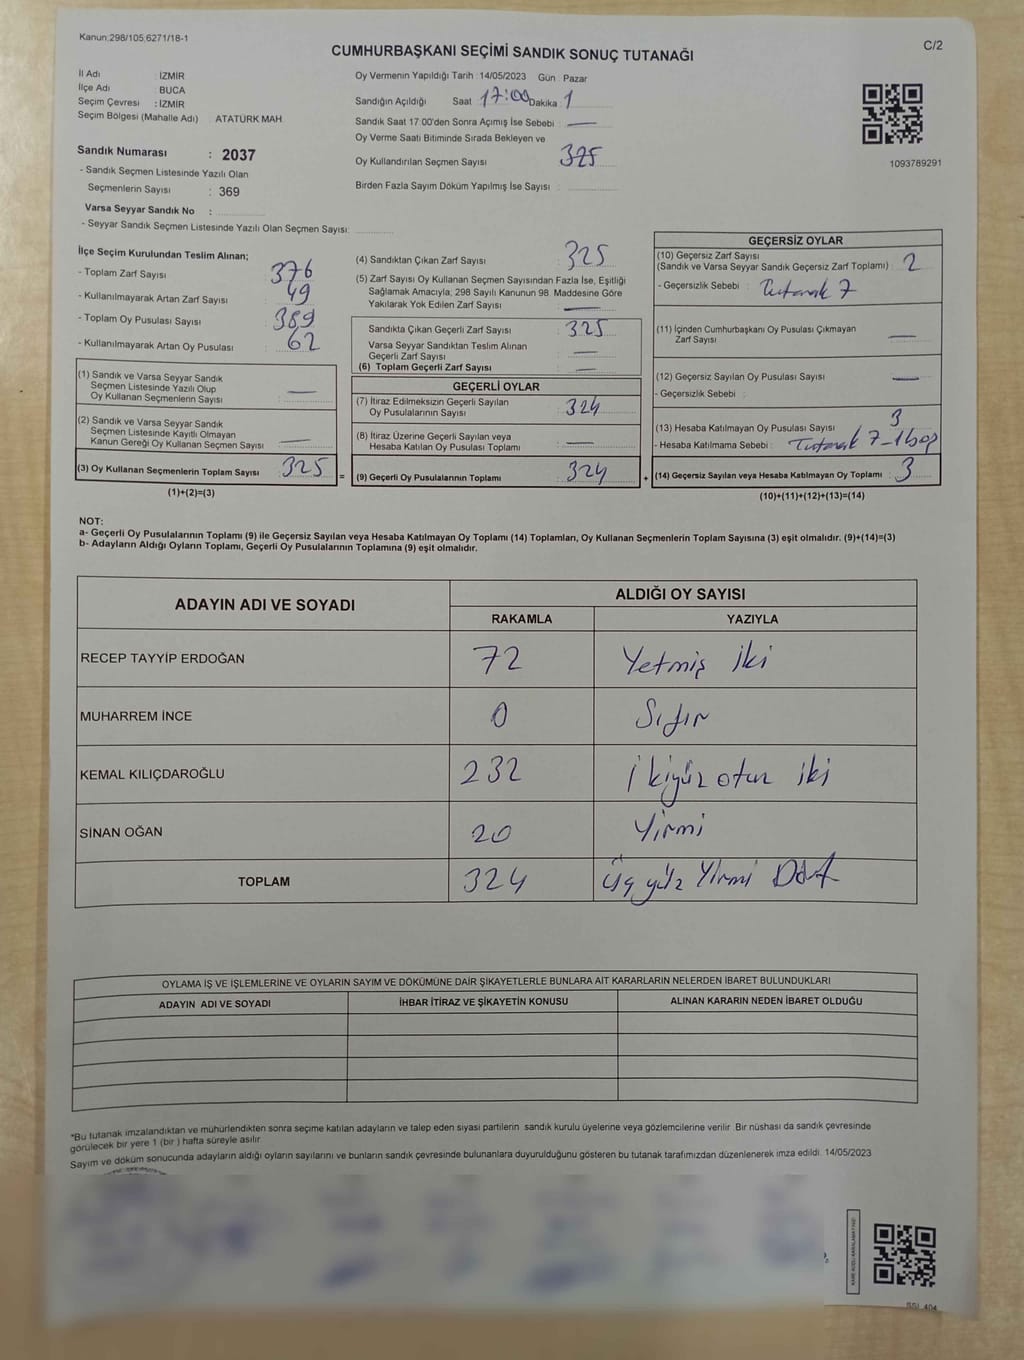 Kanun;298/105;6271/18-1
C/2
CUMHURBAŞKANI SEÇİMİ SANDIK SONUÇ TUTANAĞI
İl Adı : İZMİR
İlçe Adı : BUCA
Seçim Çevresi : İZMİR
Seçim Bölgesi (Mahalle Adı) : ATATÜRK MAH
Sandık Numarası : 2037
- Sandık Seçmen Listesinde Yazılı Olan
Seçmenlerin Sayısı : 369
Varsa Seyyar Sandık No :
- Seyyar Sandık Seçmen Listesinde Yazılı Olan Seçmen Sayısı:
Oy Vermenin Yapıldığı Tarih : 14/05/2023 Gün : Pazar
Sandığın Açıldığı Saat 17:00 Dakika 1
Sandık Saat 17:00'den Sonra Açımış İse Sebebi : —
Oy Verme Saati Bitiminde Sırada Bekleyen ve
Oy Kullandırılan Seçmen Sayısı : 325
Birden Fazla Sayım Döküm Yapılmış İse Sayısı :
1093789291
İlçe Seçim Kurulundan Teslim Alınan;
- Toplam Zarf Sayısı : 376
- Kullanılmayarak Artan Zarf Sayısı : 49
- Toplam Oy Pusulası Sayısı : 389
- Kullanılmayarak Artan Oy Pusulası : 62
(1) Sandık ve Varsa Seyyar Sandık
Seçmen Listesinde Yazılı Olup
Oy Kullanan Seçmenlerin Sayısı : —
(2) Sandık ve Varsa Seyyar Sandık
Seçmen Listesinde Kayıtlı Olmayan
Kanun Gereği Oy Kullanan Seçmen Sayısı : —
(3) Oy Kullanan Seçmenlerin Toplam Sayısı : 325 =
(1)+(2)=(3)
(4) Sandıktan Çıkan Zarf Sayısı : 325
(5) Zarf Sayısı Oy Kullanan Seçmen Sayısından Fazla İse, Eşitliği
Sağlamak Amacıyla; 298 Sayılı Kanunun 98. Maddesine Göre
Yakılarak Yok Edilen Zarf Sayısı : —
Sandıkta Çıkan Geçerli Zarf Sayısı : 325
Varsa Seyyar Sandıktan Teslim Alınan
Geçerli Zarf Sayısı : —
(6) Toplam Geçerli Zarf Sayısı : —
GEÇERLİ OYLAR
(7) İtiraz Edilmeksizin Geçerli Sayılan
Oy Pusulalarının Sayısı : 324
(8) İtiraz Üzerine Geçerli Sayılan veya
Hesaba Katılan Oy Pusulalarının Sayısı : —
(9) Geçerli Oy Pusulalarının Toplamı : 324 +
GEÇERSİZ OYLAR
(10) Geçersiz Zarf Sayısı
(Sandık ve Varsa Seyyar Sandık Geçersiz Zarf Toplamı) : 2
- Geçersizlik Sebebi : Tutanak 7
(11) İçinden Cumhurbaşkanı Oy Pusulası Çıkmayan
Zarf Sayısı : —
(12) Geçersiz Sayılan Oy Pusulası Sayısı : —
- Geçersizlik Sebebi :
(13) Hesaba Katılmayan Oy Pusulası Sayısı : 3
- Hesaba Katılmama Sebebi : Tutanak 7-1
(14) Geçersiz Sayılan veya Hesaba Katılmayan Oy Toplamı : 3
(10)+(11)+(12)+(13)=(14)
NOT:
a- Geçerli Oy Pusulalarının Toplamı (9) ile Geçersiz Sayılan veya Hesaba Katılmayan Oy Toplamı (14) Toplamları, Oy Kullanan Seçmenlerin Toplam Sayısına (3) eşit olmalıdır. (9)+(14)=(3)
b- Adayların Aldığı Oyların Toplamı, Geçerli Oy Pusulalarının Toplamına (9) eşit olmalıdır.
ADAYIN ADI VE SOYADI
ALDIĞI OY SAYISI
RAKAMLA YAZIYLA
RECEP TAYYİP ERDOĞAN 72 Yetmiş iki
MUHARREM İNCE 0 Sıfır
KEMAL KILIÇDAROĞLU 232 ikiyüz otuz iki
SİNAN OĞAN 20 Yirmi
TOPLAM 324 Üç yüz Yirmi Dört
OYLAMA İŞ VE İŞLEMLERİNE VE OYLARIN SAYIM VE DÖKÜMÜNE DAİR ŞİKAYETLERLE BUNLARA AİT KARARLARIN NELERDEN İBARET BULUNDUKLARI
ADAYIN ADI VE SOYADI İHBAR İTİRAZ VE ŞİKAYETİN KONUSU ALINAN KARARIN NEDEN İBARET OLDUĞU
*Bu tutanak imzalandıktan ve mühürlendikten sonra seçime katılan adayların ve talep eden siyasi partilerin sandık kurulu üyelerine veya gözlemcilerine verilir. Bir nüshası da sandık çevresinde
görülecek bir yere 1 (bir ) hafta süreyle asılır.
Sayım ve döküm sonucunda adayların aldığı oyların sayılarını ve bunların sandık çevresinde bulunanlara duyurulduğunu gösteren bu tutanak tarafımızdan düzenlenerek imza edildi. 14/05/2023